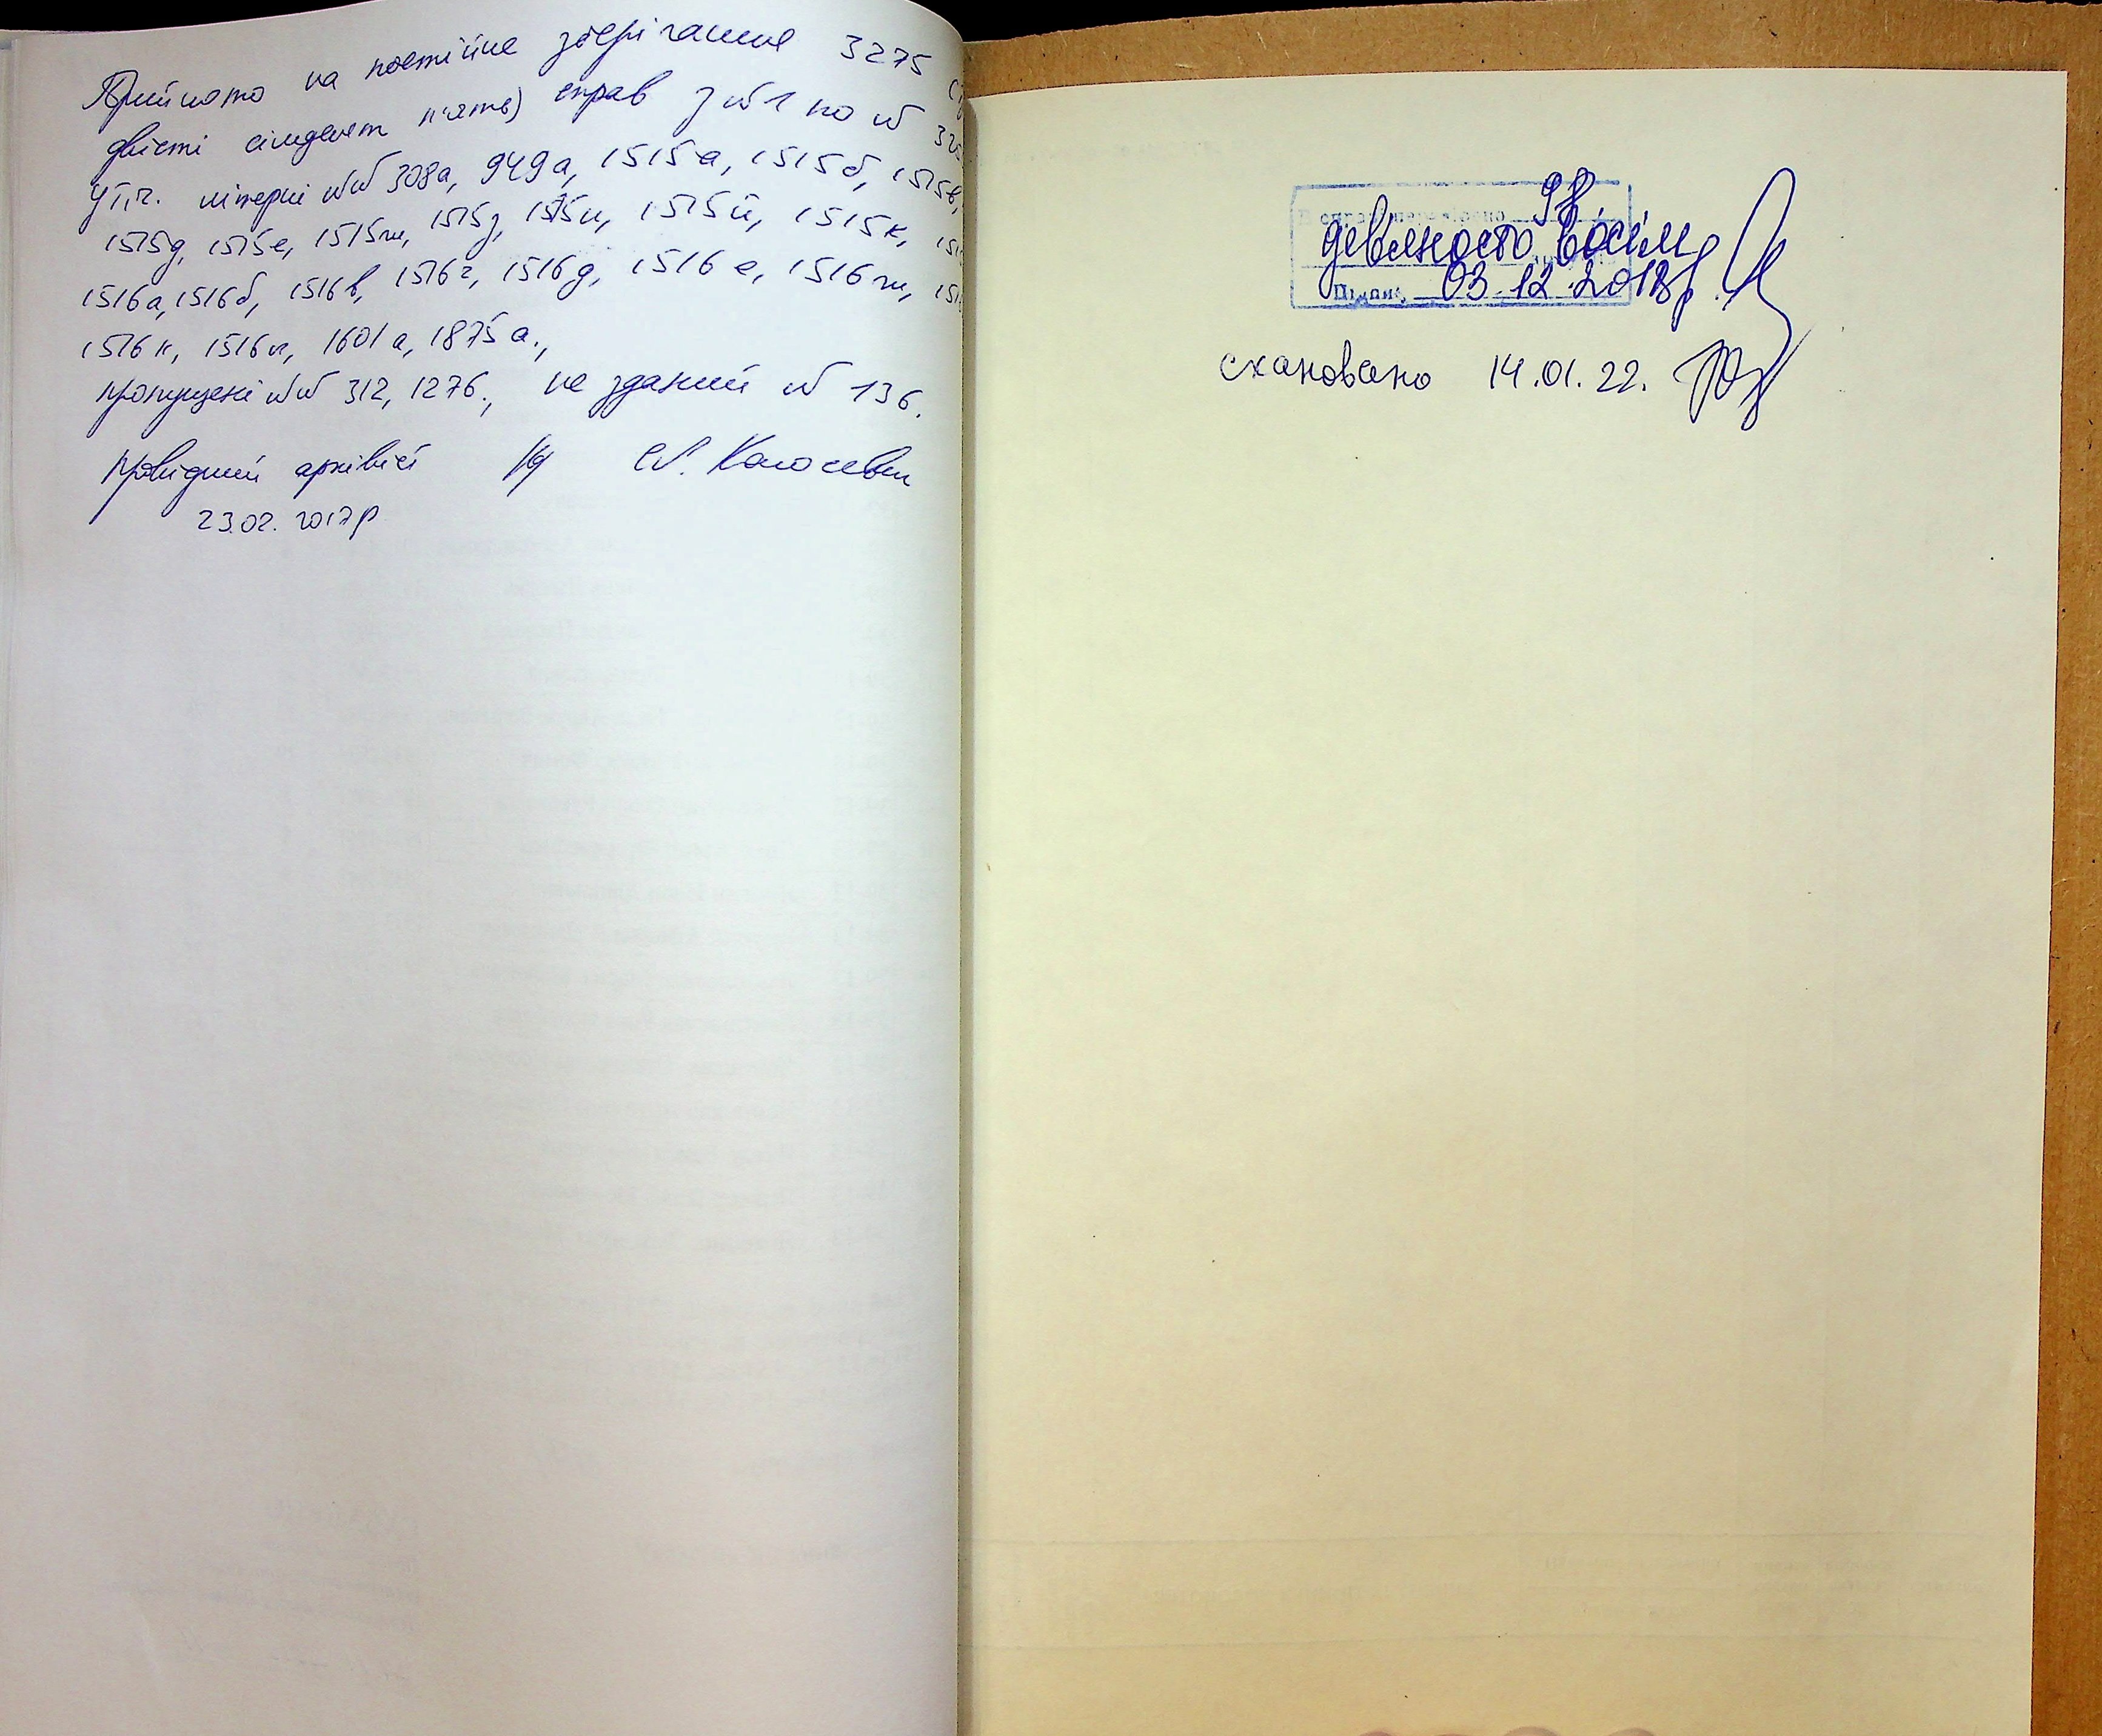 Прийнято на постійне зберігання 3275
двісті сімдесят п'ять) справ з №1 по № 325
у т.ч. літерні №№ 308а, 949а, 1515а, 1515б, 1515в,
1515д, 1515е, 1515ж, 1515з, 1515и, 1515й, 1515к,
1516а, 1516б, 1516в, 1516г, 1516д, 1516е, 1516ж,
1516к, 1516л, 1601а, 1875а.,
пропущені №№ 312, 1276., не зданий № 136.
Провідний архівіст
23.02.2017р
98
дев'яносто вісім
Підпис 03.12.2018р.
скановано 14.01.22.